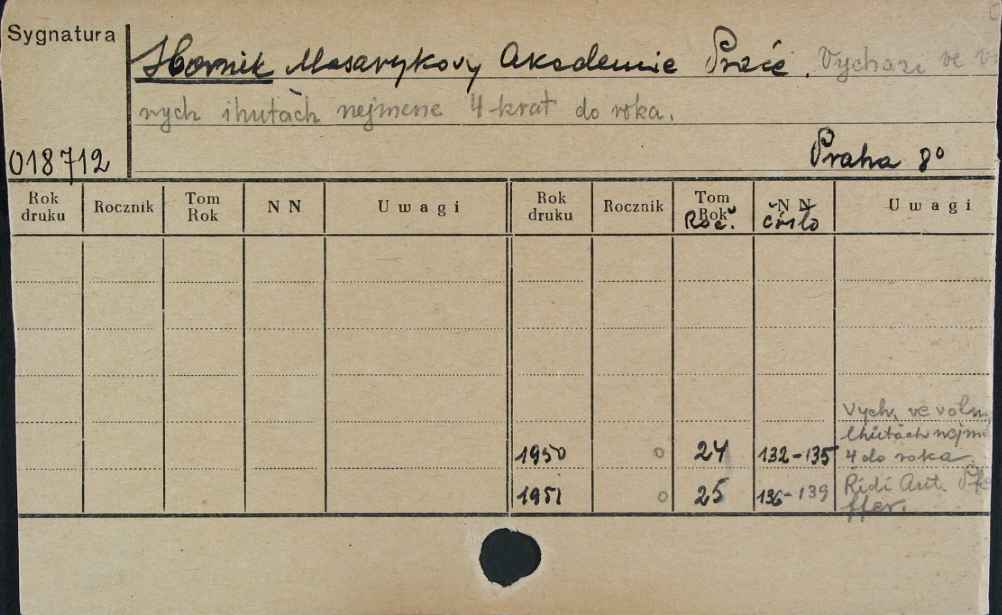 Sygnatura
Sborník Masarykovy Akademie Práce. Vychází ve v
ných lhutách nejmene 4-krat do roka.
018712
Praha 8º
Rok druku Rocznik Tom Rok N N Uwagi Rok druku Rocznik Tom Rok N N Uwagi
Roč. číslo
Vych. ve voln
lhůtách nejm
1950 o 24 132-135 4 do roka
1951 o 25 136-139 Řídí Ant. Pfe
ffer.